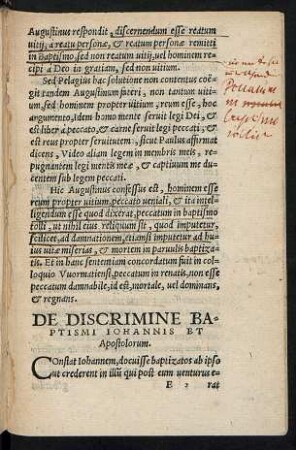 Augustinus respondit, discernendum esse reatum
uitij, a reatu personæ, & reatum personæ remitti
in Baptismo, sed non reatum uitij, uel hominem re⸗
cipi a Deo in gratiam, sed non uitium.
Sed Pelagius hac solutione non contentus coë⸗
git tandem Augustinum fateri, non tantum uiti⸗
um, sed hominem propter uitium, reum esse, hoc ar⸗
gumento, Idem homo mente seruit legi Dei, &
est liber a peccato, & carne seruit legi peccati, &
est reus propter seruitutem, sicut Paulus affirmat
dicens, Video aliam legem in membris meis, re⸗
pugnantem legi mentis meæ, & captiuum me du⸗
centem sub legem peccati.
Hic Augustinus confessus est, hominem esse
reum propter uitium, peccato ueniali, & ita intel⸗
ligendum esse quod dixerat, peccatum in baptismo
tolli, ut nihil eius reliquum sit, quod imputetur,
scilicet, ad damnationem, etiamsi imputetur ad hu⸗
ius uitæ miserias, & mortem in paruulis baptiza⸗
tis. Et in hanc sententiam concordatum fuit in col⸗
loquio Vuormatiensi, peccatum in renatis, non esse
peccatum damnabile, id est, mortale, uel dominans,
& regnans.
DE DISCRIMINE BA⸗
PTISMI IOHANNIS ET
Apostolorum.
COnstat Iohannem, docuisse baptizatos ab ipso
ut crederent in illũ qui post eum uenturus e⸗
E 2 rat